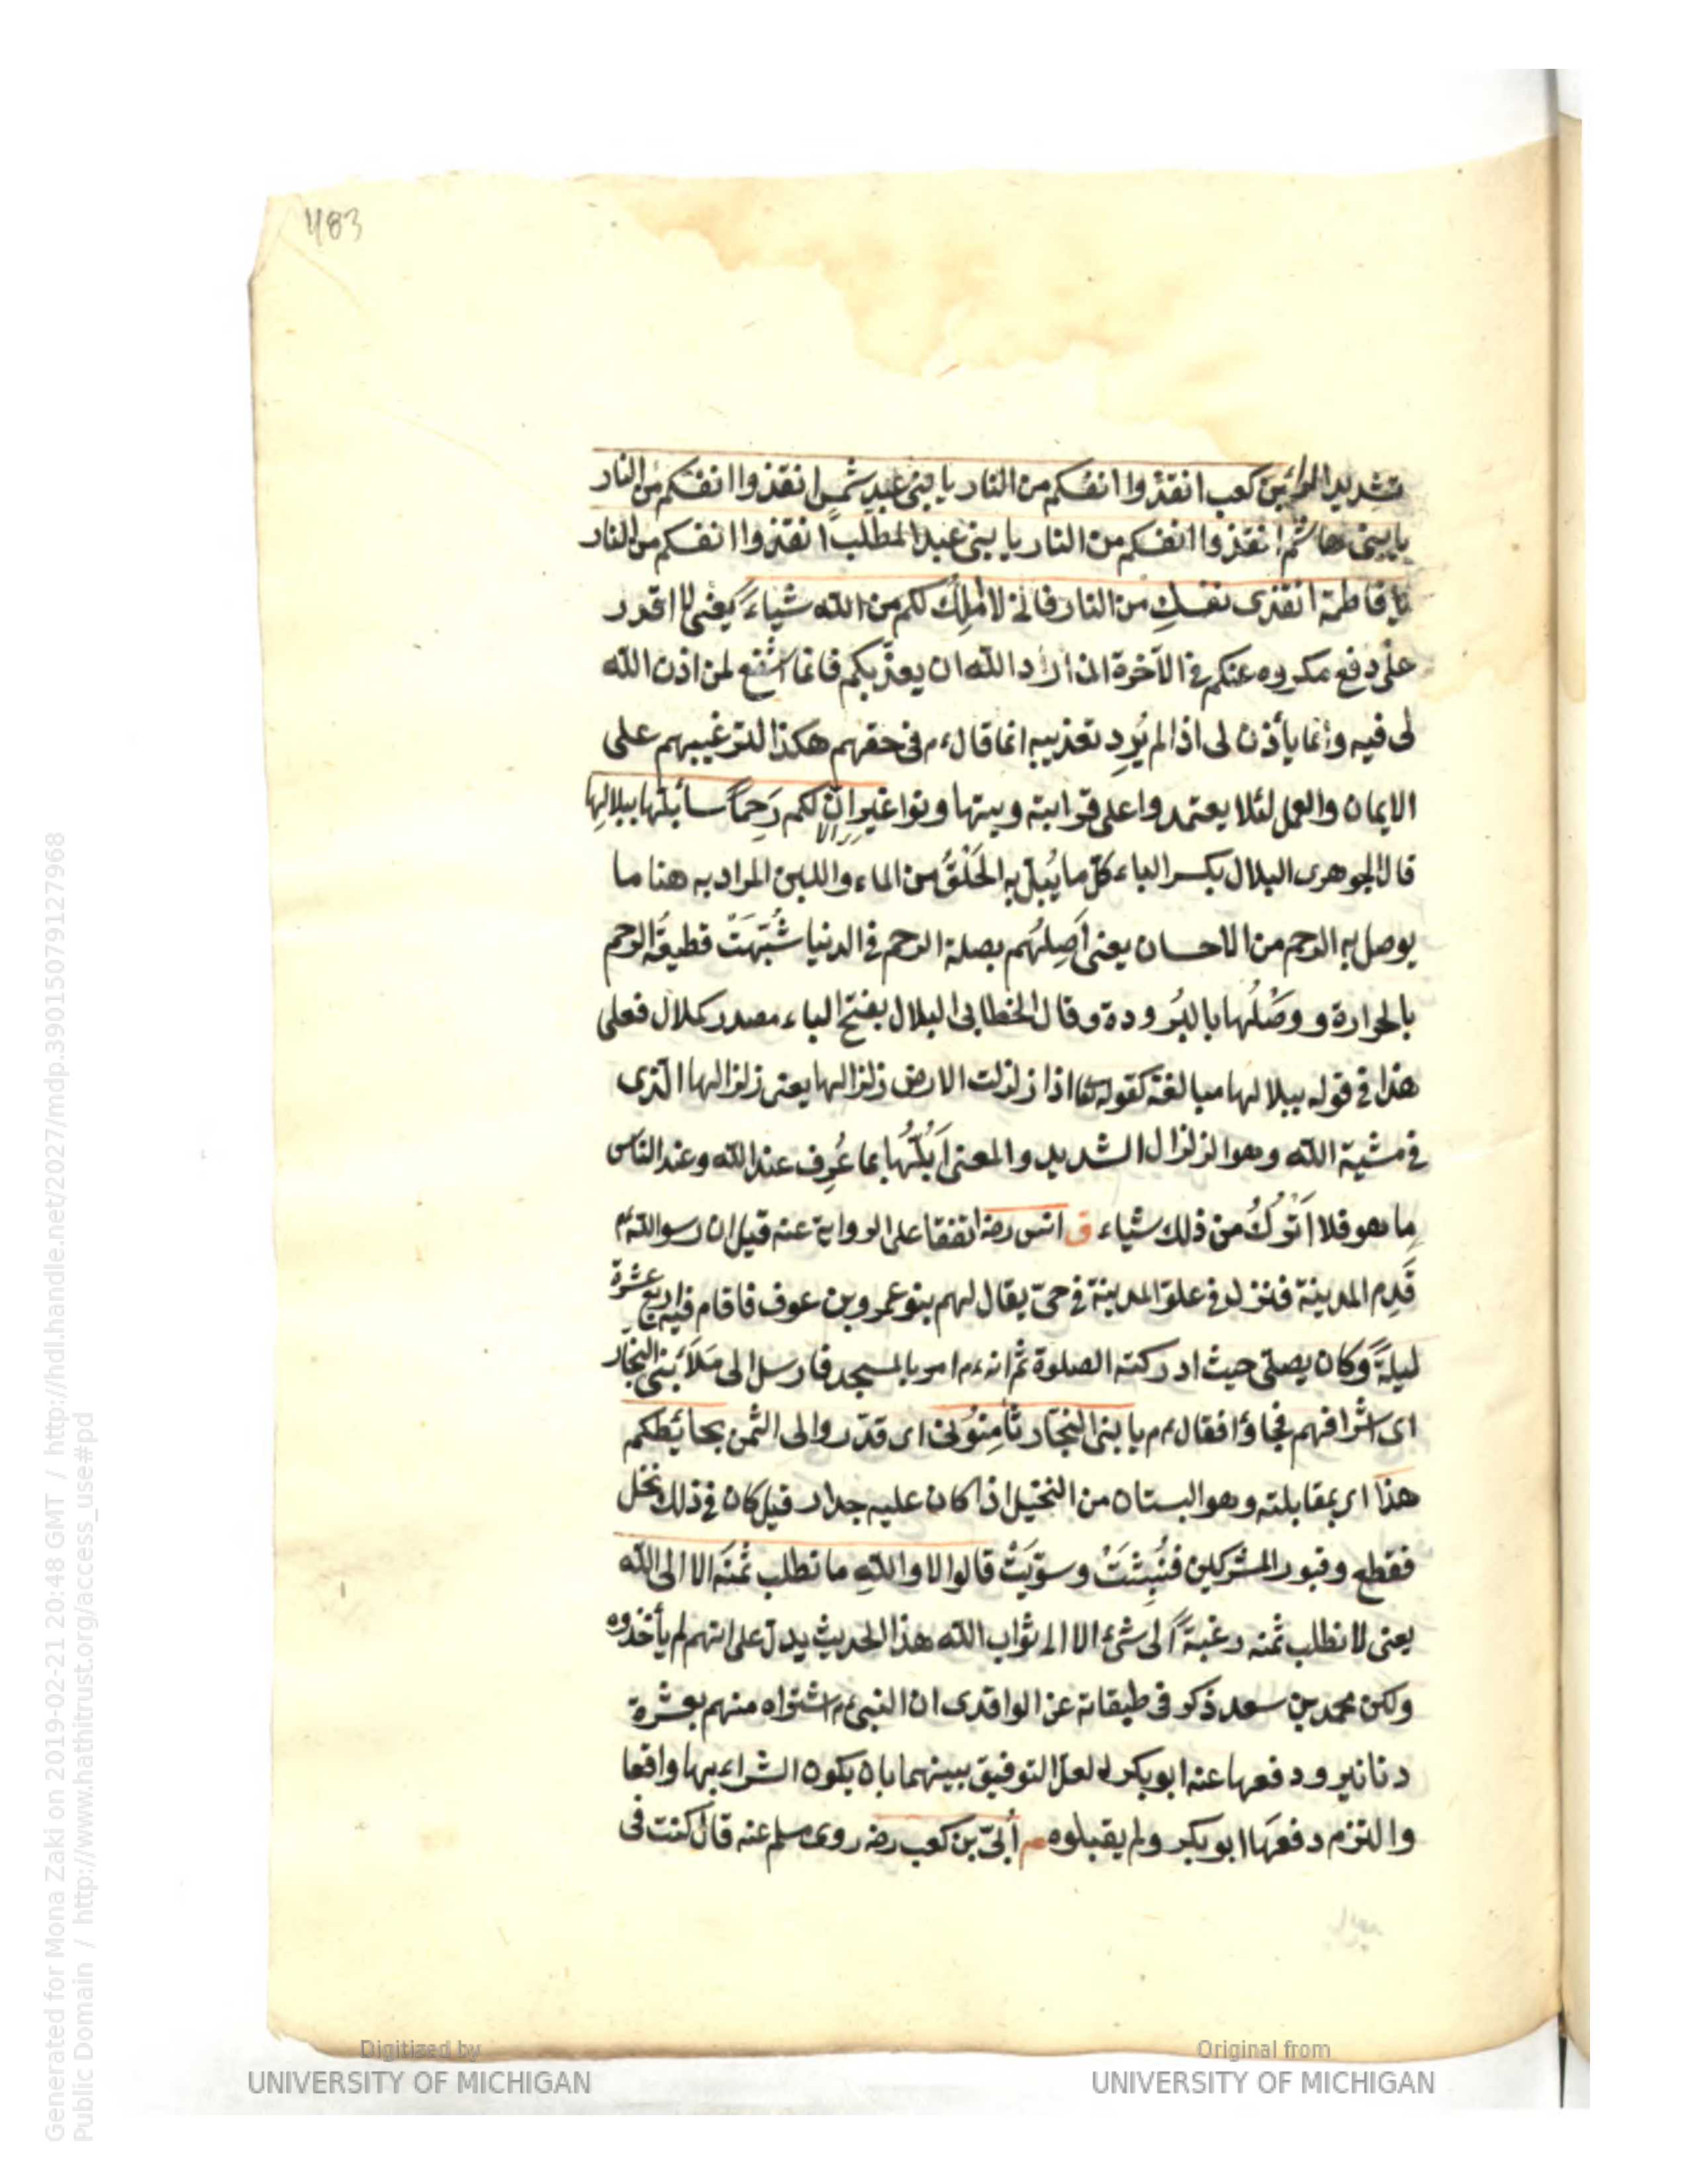 483
تشديد الراء بن كعب انقذوا انفسكم من النار يا بنى عبد شمس انقذوا انفسكم من النار
يا بنى هاشم انقذوا انفسكم من النار يا بنى عبد المطلب انقذوا انفسكم من النار
يا فاطمة انقذى نفسكِ من النار فانى لا املِك لكم من الله شياءً يعنى لا اقدر
على دفع مكروه عنكم فى الآخرة ان اراد الله ان يعذبكم فانما اشفع لمن اذن الله
لى فيه وانما يأذن لى اذا لم يُرِد تعذيبه انما قال ءم فى حقهم هكذا لترغيبهم على
الايمان والعمل لئلا يعتمدوا على قرابته ويتهاونوا غير انّ لكم رَحِماً سأبلّها ببلالِها
قال الجوهرى البلال بكسر الباء كلّ ما يُبلّ به الحَلْقُ من الماء واللبن المراد به هنا ما
يوصل به الرحم من الاحسان يعنى اَصِلُهم بصلة الرحم فى الدنيا شُبّهَتْ قطيعَة الرحم
بالحرارة ووَصْلُها بالبُرودة وقال الخطابى البلال بفتح الباء مصدر كملال فعلى
هذا فى قوله ببلالها مبالغة كقوله تعا اذا زلزلت الارض زلزالها يعنى زلزالها الذى
فى مشية الله وهو الزلزال الشديد والمعنى اَبُلّهُا بما عُرِف عند الله وعند الناس
ما هو فلا اَتْركُ من ذلك شياء ق انس رضه اتفقا على الرواية عنه قيل ان رسو الله ءم
قَدِم المدينة فنزل فى علوّ المدينة فى حىّ يقال لهم بنو عمرو بن عوف فاقام فيه اربع عشرة
ليلةً وكان يصلى حيث ادركته الصلوة ثم انه ءم امر بالمسجد فارسل الى مَلَأ بنى النجار
اى اشرافهم فجاؤا فقال ءم يا بنى النجّار ثامِنُونى اى قدّروا لى الثمن بحائِطكم
هذا اى بمقابلته وهو البستان من النخيل اذا كان عليه جدار قيل كان فى ذلك نخل
فقطع وقبور المشركين فنُبِشَتْ وسوّيَتْ قالوا لا واللهِ ما نطلب ثمنَه الا الى الله
يعنى لا نطلب ثمنه رغبةً الى شئ الا الى ثواب الله هذا الحديث يدلّ على انهم لم يأخذوه
ولكن محمد بن سعد ذكر فى طبقاته عن الواقدى ان النبى ءم اشتراه منهم بعشرة
دنانير ودفعها عنه ابو بكر لعل التوفيق بينهما بان يكون الشراء بها واقعا
والتزم دفعَها ابو بكر ولم يقبلوه م اُبىّ بن كعب رضه روى مسلم عنه قال كنت فى
Generated for Mona Zaki on 2019-02-21 20:48 GMT / http://hdl.handle.net/2027/mdp.39015079127968
Public Domain / http://www.hathitrust.org/access_use#pd
Digitized by
UNIVERSITY OF MICHIGAN
Original from
UNIVERSITY OF MICHIGAN